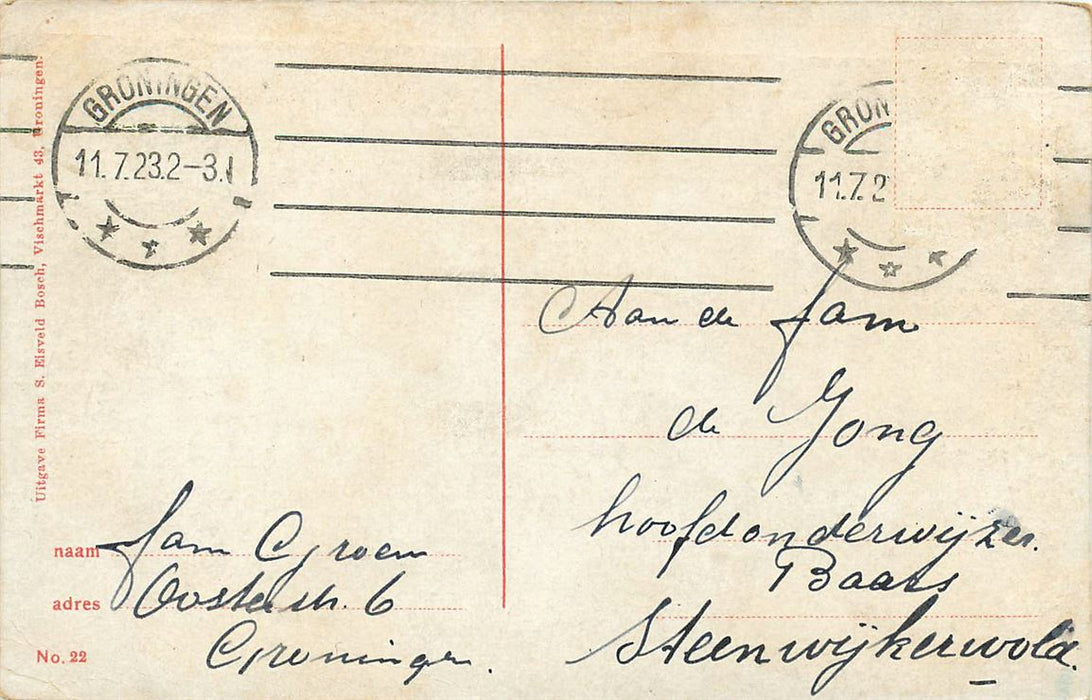 GRONINGEN
11.7.23.2-3.N
GRON
11.7.2
Uitgave Firma S. Eisveld Bosch, Vischmarkt 43, Groningen.
Aan de fam
de Jong
hoofdonderwijzer.
Baars
Steenwijkerwold.
naam fam Groen
adres Oosterstr. 6
Groningen.
No. 22